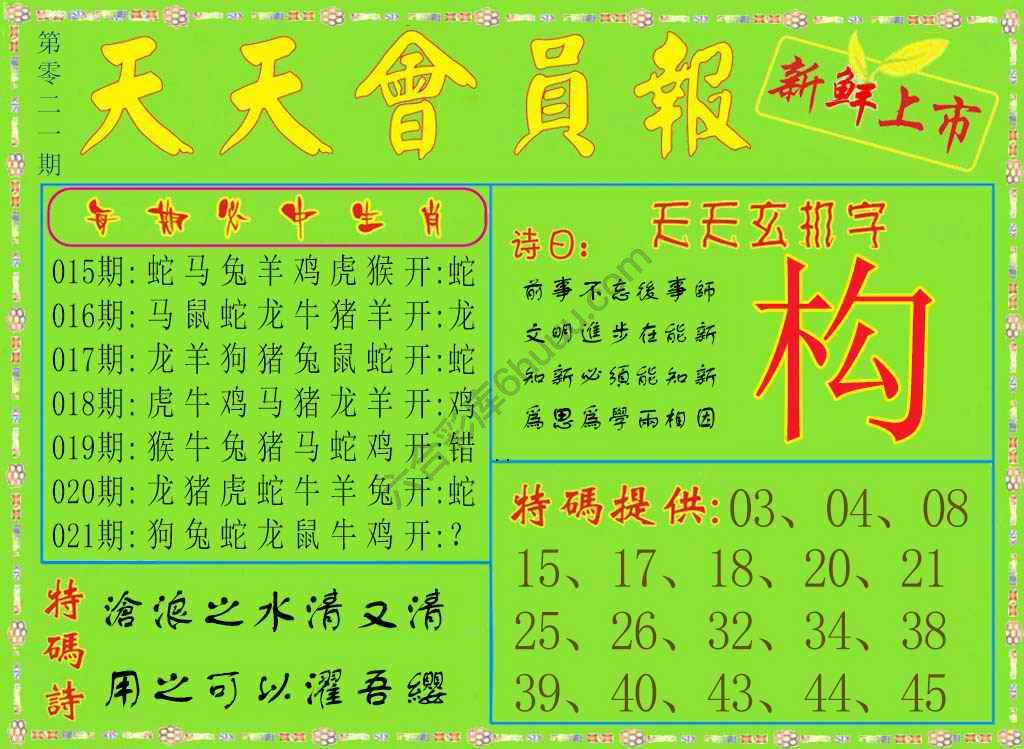 第零二一期
天天會員報
新鮮上市
每期必中生肖
015期:蛇马兔羊鸡虎猴开:蛇
016期:马鼠蛇龙牛猪羊开:龙
017期:龙羊狗猪兔鼠蛇开:蛇
018期:虎牛鸡马猪龙羊开:鸡
019期:猴牛兔猪马蛇鸡开:错
020期:龙猪虎蛇牛羊兔开:蛇
021期:狗兔蛇龙鼠牛鸡开:?
天天玄机字
诗曰:
前事不忘後事師
文明進步在能新
知新必須能知新
爲思爲學兩相因
构
特碼提供:03、04、08
15、17、18、20、21
25、26、32、34、38
39、40、43、44、45
特碼詩
滄浪之水清又清
用之可以濯吾纓
六合彩库6hubu.com